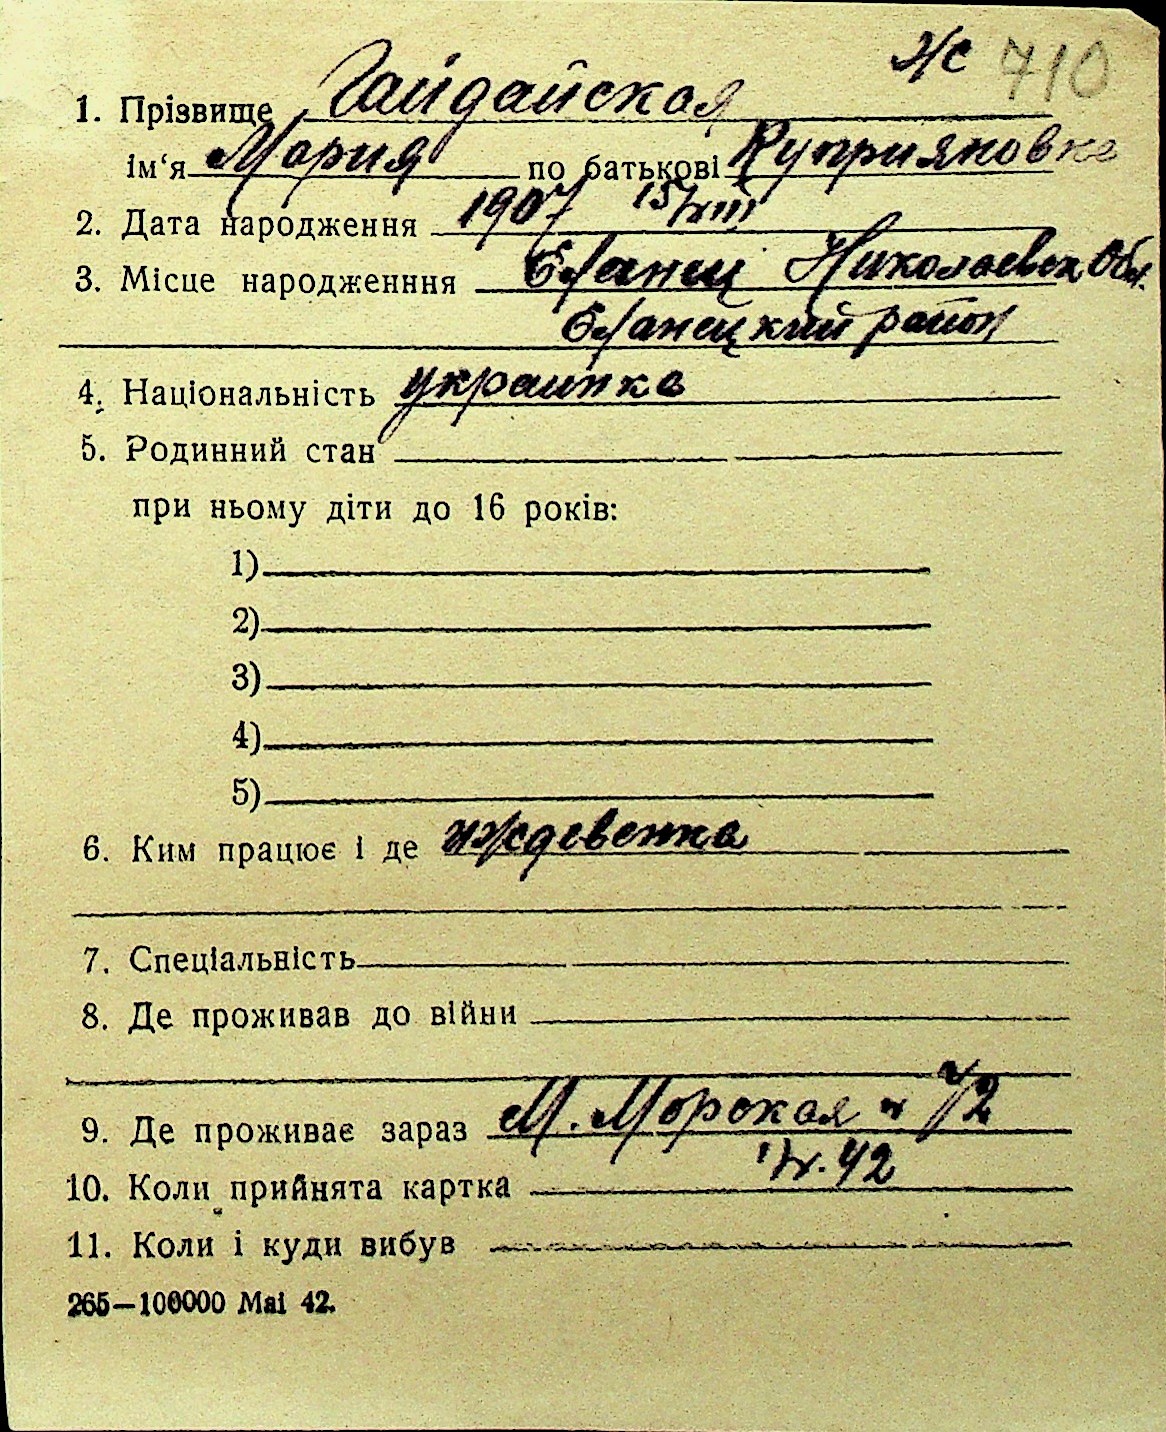 ж 710
1. Прізвище Гайдайская
ім‘я Мария по батькові Куприяновна
2. Дата народження 1907 15/VIII
3. Місце народженння Еланец Николаевск Обл.
Еланецкий район
4. Національність украинка
5. Родинний стан
при ньому діти до 16 років:
1)
2)
3)
4)
5)
6. Ким працює і де иждевенка
7. Спеціальність
8. Де проживав до війни
9. Де проживає зараз М. Морская 72
10. Коли прийнята картка 42
11. Коли і куди вибув
265—100000 Mai 42.